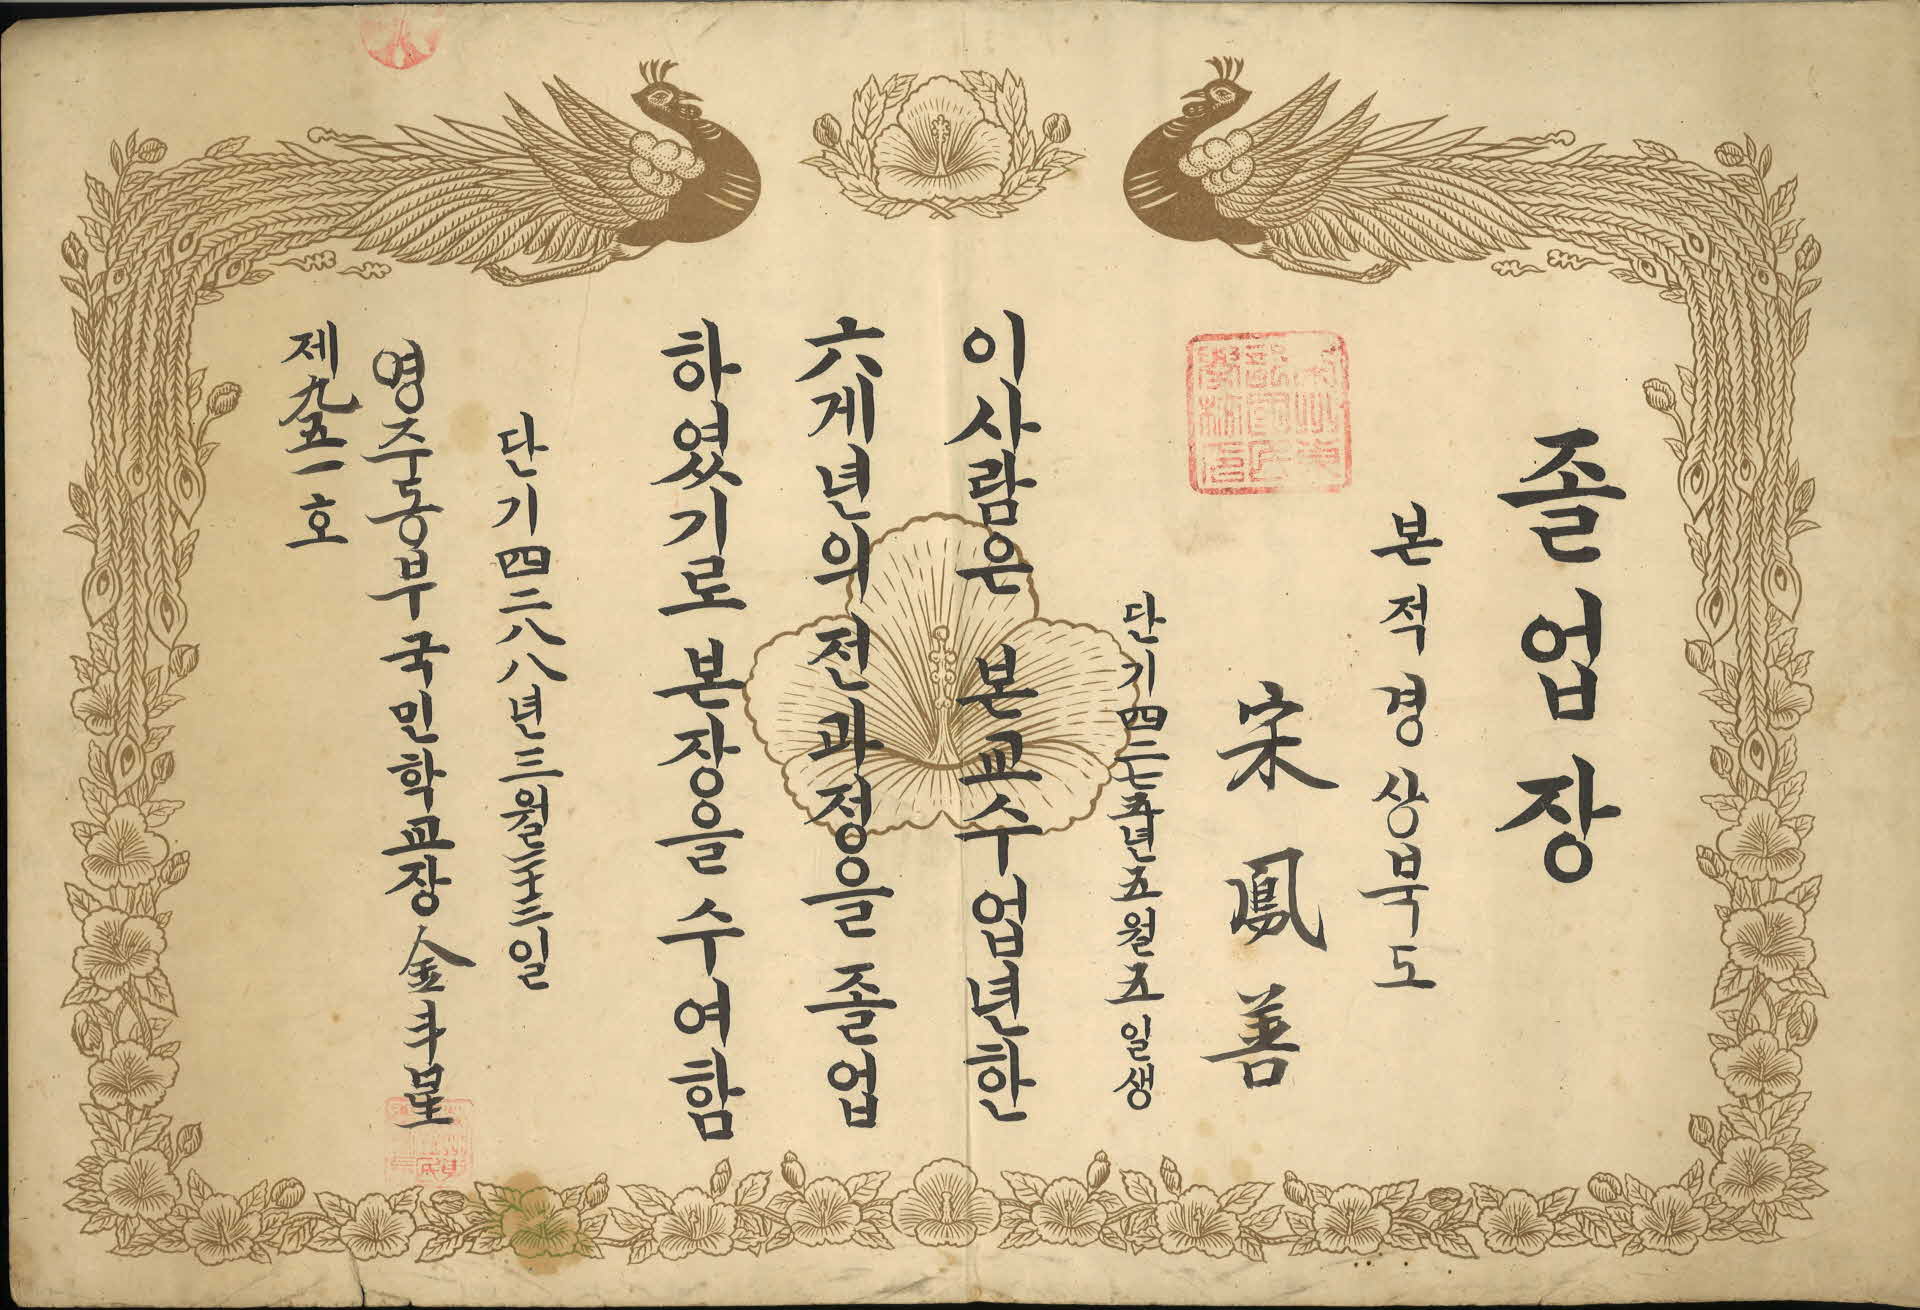 졸업장
본적 경상북도
宋鳳善
단기四二七五년五월五일생
이 사람은 본교 수업년한
六게년의 전과정을 졸업
하였기로 본장을 수여함
단기四二八八년三월二十三일
영주동부국민학교장 金斗星
제九五一호